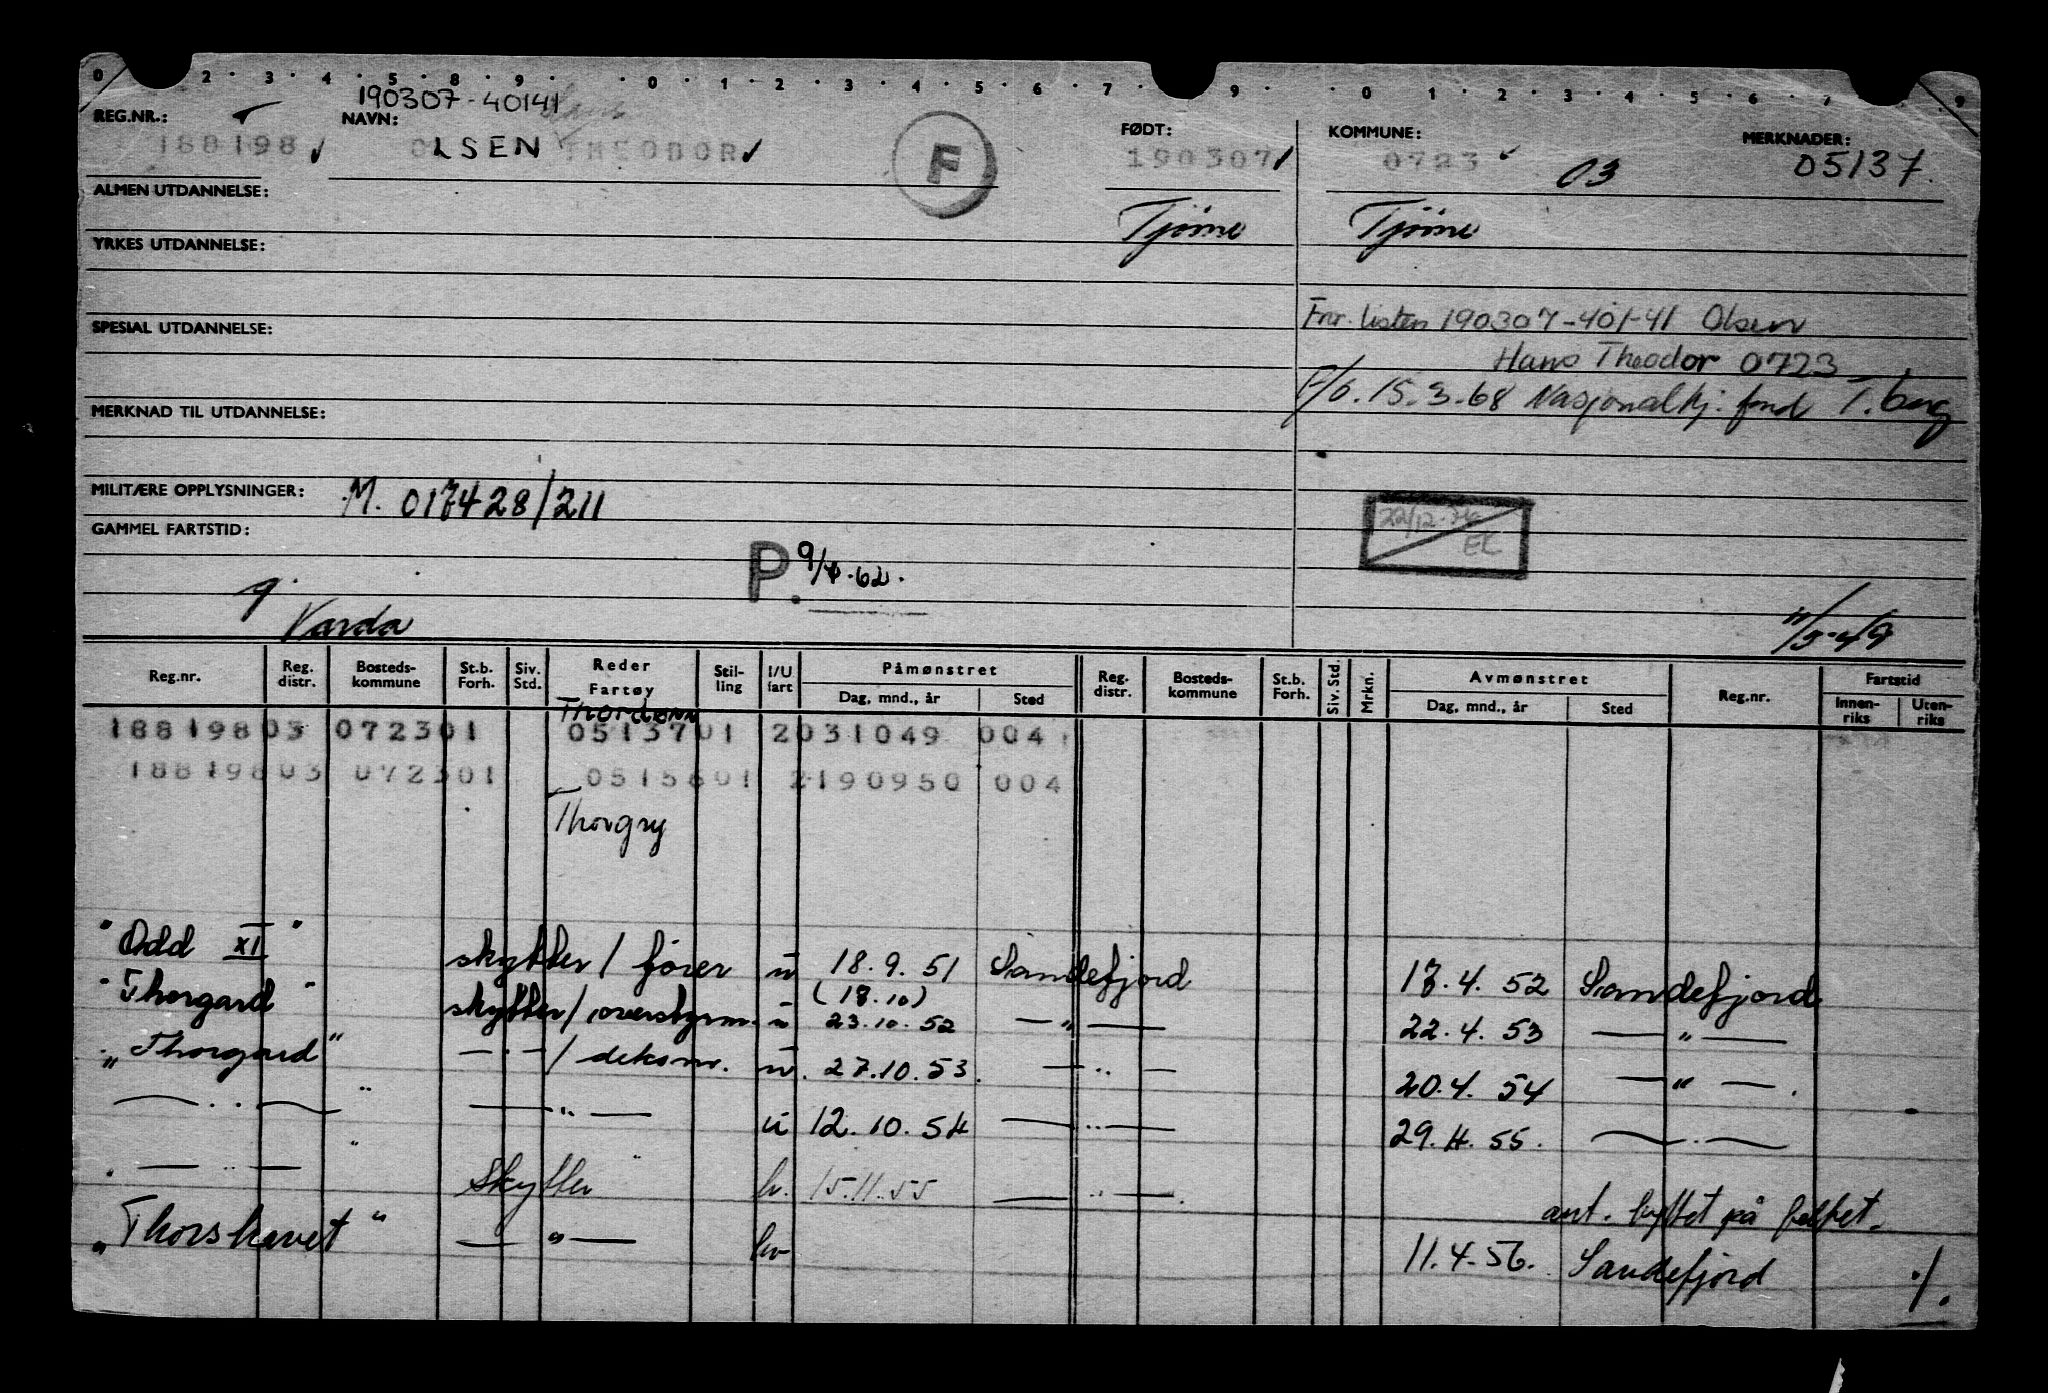 0 2 · 3 · 4 · 5 · 8 · 9 · · 0 · 1 · 2 · 3 · 4 · 5 · 6 · 7 · 9 · · 0 · 1 · 2 · 3 · 4 · 5 · 6 · 7 9
190307-40141 Hans
REG.NR.: NAVN: FØDT: KOMMUNE: MERKNADER:
188198 OLSEN THEODOR F 190307 0723 03 05137
ALMEN UTDANNELSE:
Tjöme Tjöme
YRKES UTDANNELSE:
Fnr. listen 190307-401-41 Olsen
SPESIAL UTDANNELSE:
Hans Theodor 0723
P/b. 15-3-68 Nasjonalhj. fond T.berg
MERKNAD TIL UTDANNELSE:
MILITÆRE OPPLYSNINGER: M. 017428/211
22/12 EL
GAMMEL FARTSTID:
P. 9/4.62.
Varda 11/5-49
Reg.nr. Reg. distr. Bosteds- kommune St.b. Forh. Siv. Std. Reder Fartøy Stil- ling I/U fart Påmønstret Dag, mnd., år Sted Reg. distr. Bosteds- kommune St.b. Forh. Siv. Std. Mrkn. Avmønstret Dag, mnd., år Sted Reg.nr. Fartstid Innen- riks Uten- riks
Thordønn
188198 03 0723 01 05137 01 2 031049 004
188198 03 0723 01 05156 01 2 190950 004
Thorgry
"Odd XI" skytter / fører u 18.9.51 Sandefjord 17.4.52 Sandefjord
(17.10)
"Thorgard" skytter / overstyrm. u 23.10.52 — " — 22.4.53 — " —
"Thorgard" — " — / dekksm. u. 27.10.53. — " — 20.4.54 — " — .
— " — " — " — u 12.10.54 — " — 29.4.55. — " —
" — " — " Skytter hv. 15.11.55 — " — . ant. byttet på feltet.
"Thorshavet" — " — hv 11.4.56. Sandefjord ./.